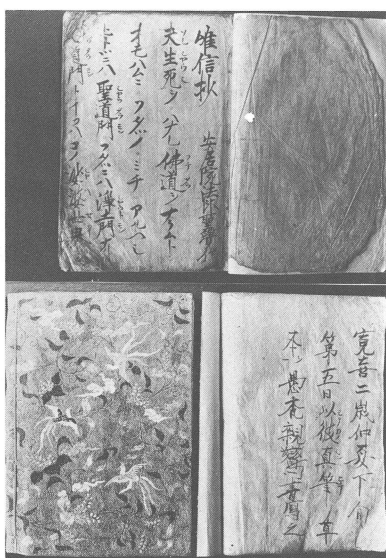 唯信抄 安居院法印聖覚作
夫生死ヲハナレ佛道ヲナラムト
オモハムニフタツノミチアルヘシ
ヒトツニハ聖道門フタツニハ浄土門ナ
聖道門トイフハコノ娑婆世界
寛喜二歳仲夏下旬
第五日以彼真筆草
本 愚禿親鸞書寫之